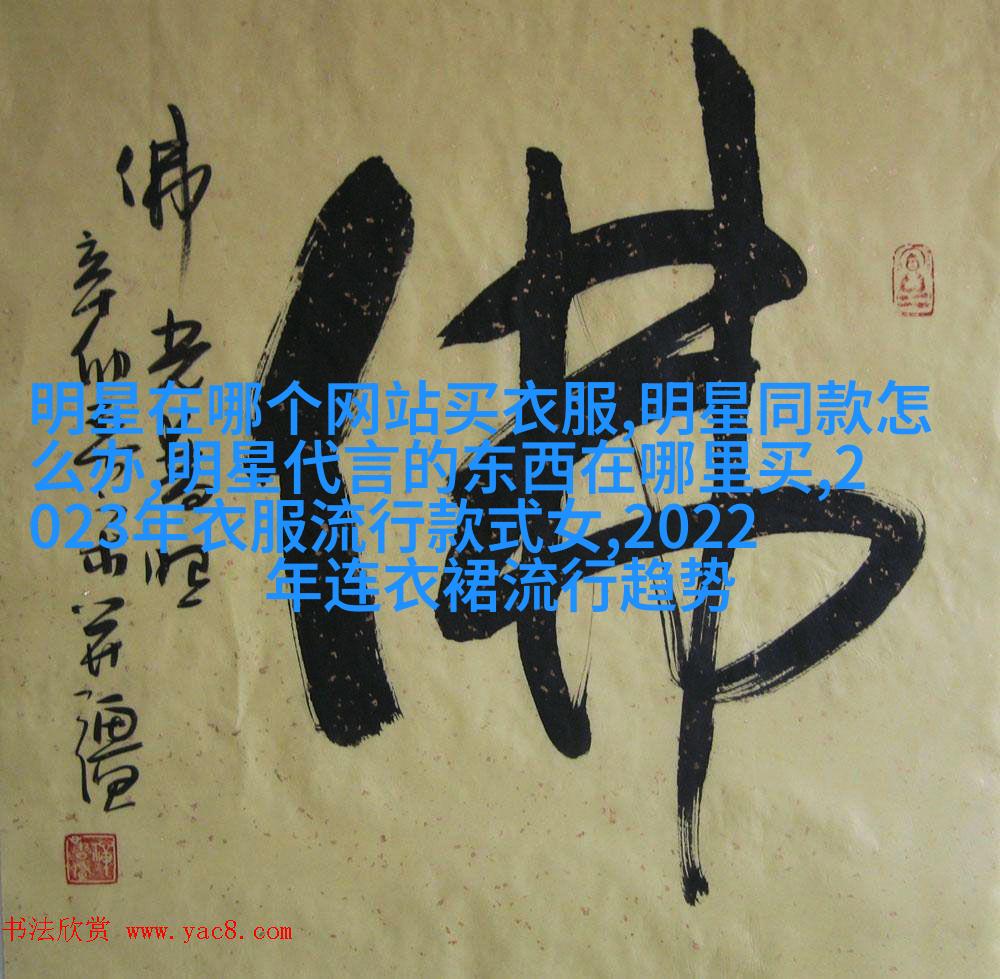 佛
佛光普照
辛卯
明星在哪个网站买衣服,明星同款怎
么办,明星代言的东西在哪里买,2
023年衣服流行款式女,2022
年连衣裙流行趋势
书法欣赏 www.yac8.com